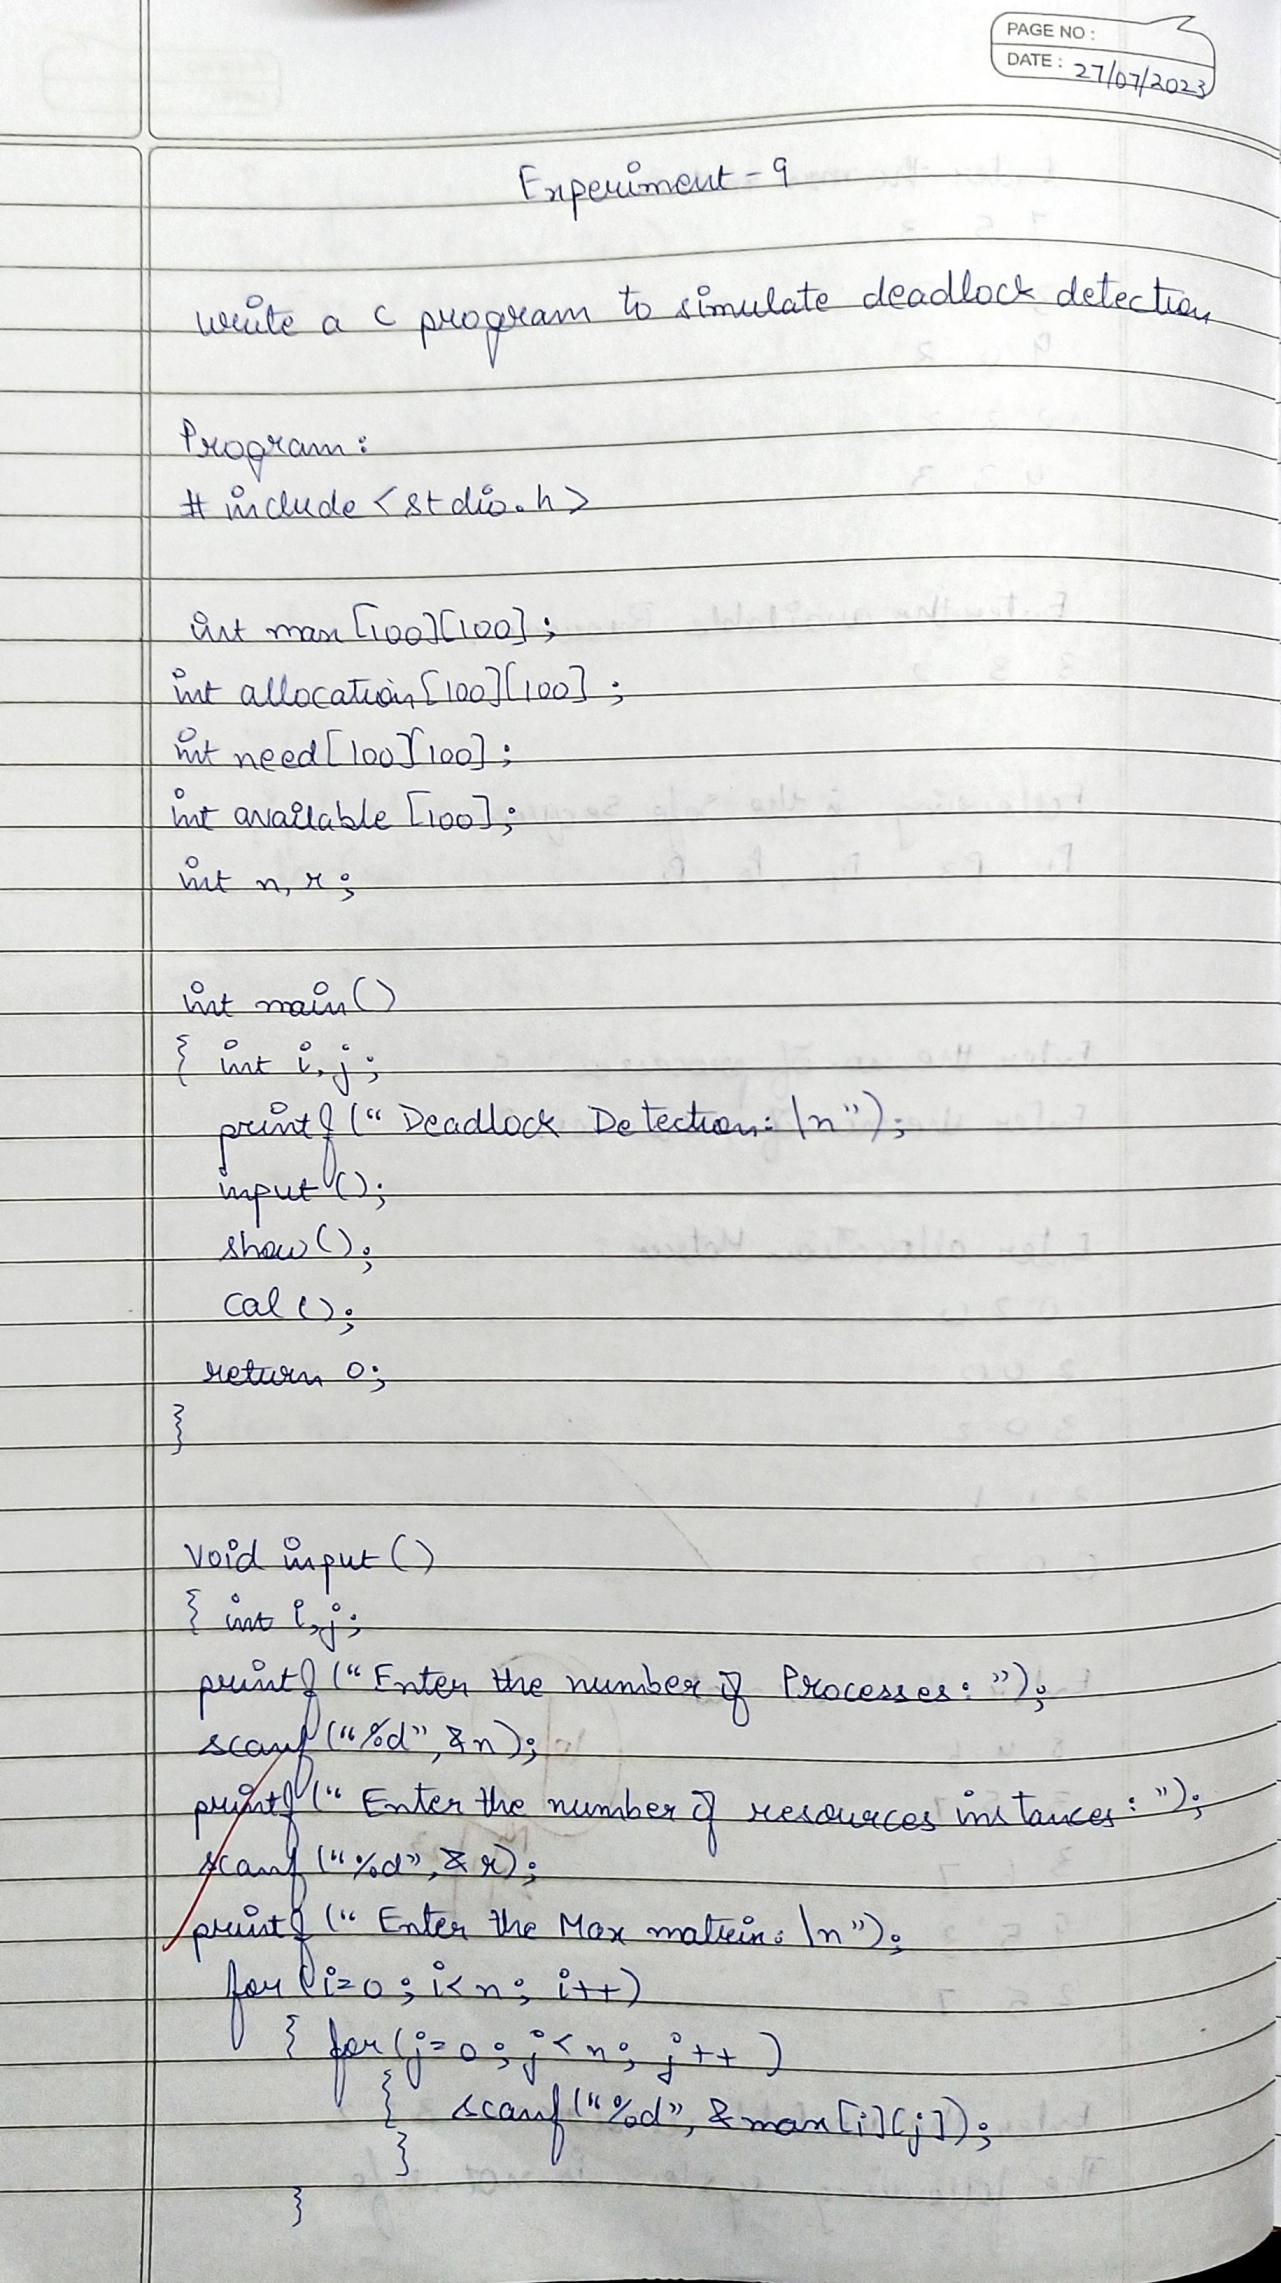 PAGE NO :
DATE : 27/07/2023
Experiment - 9
write a c program to simulate deadlock detection
Program:
# include <stdio.h>
int max [100][100];
int allocation [100][100];
int need [100][100];
int available [100];
int n, r;
int main()
{ int i, j;
printf (" Deadlock Detection: \n");
input ();
show ();
cal ();
return 0;
}
void input ()
{ int i, j;
printf (" Enter the number of Processes: ");
scanf ("%d", &n);
printf (" Enter the number of resources instances: ");
scanf ("%d", &r);
printf (" Enter the Max matrix: \n");
for (i=0; i<n; i++)
{ for (j=0; j<n; j++)
{ scanf ("%d", &max[i][j]);
}
}